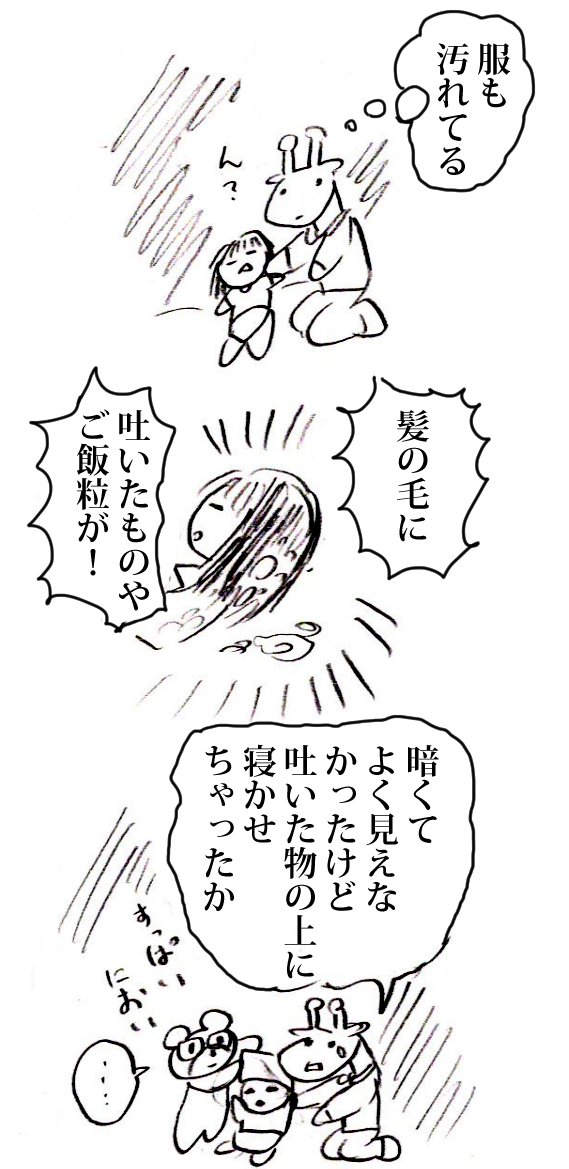 服も
汚れてる
ん?
髪の毛に
吐いたものや
ご飯粒が!
暗くて
よく見えな
かったけど
吐いた物の上に
寝かせ
ちゃったか
すっぱい
におい
…